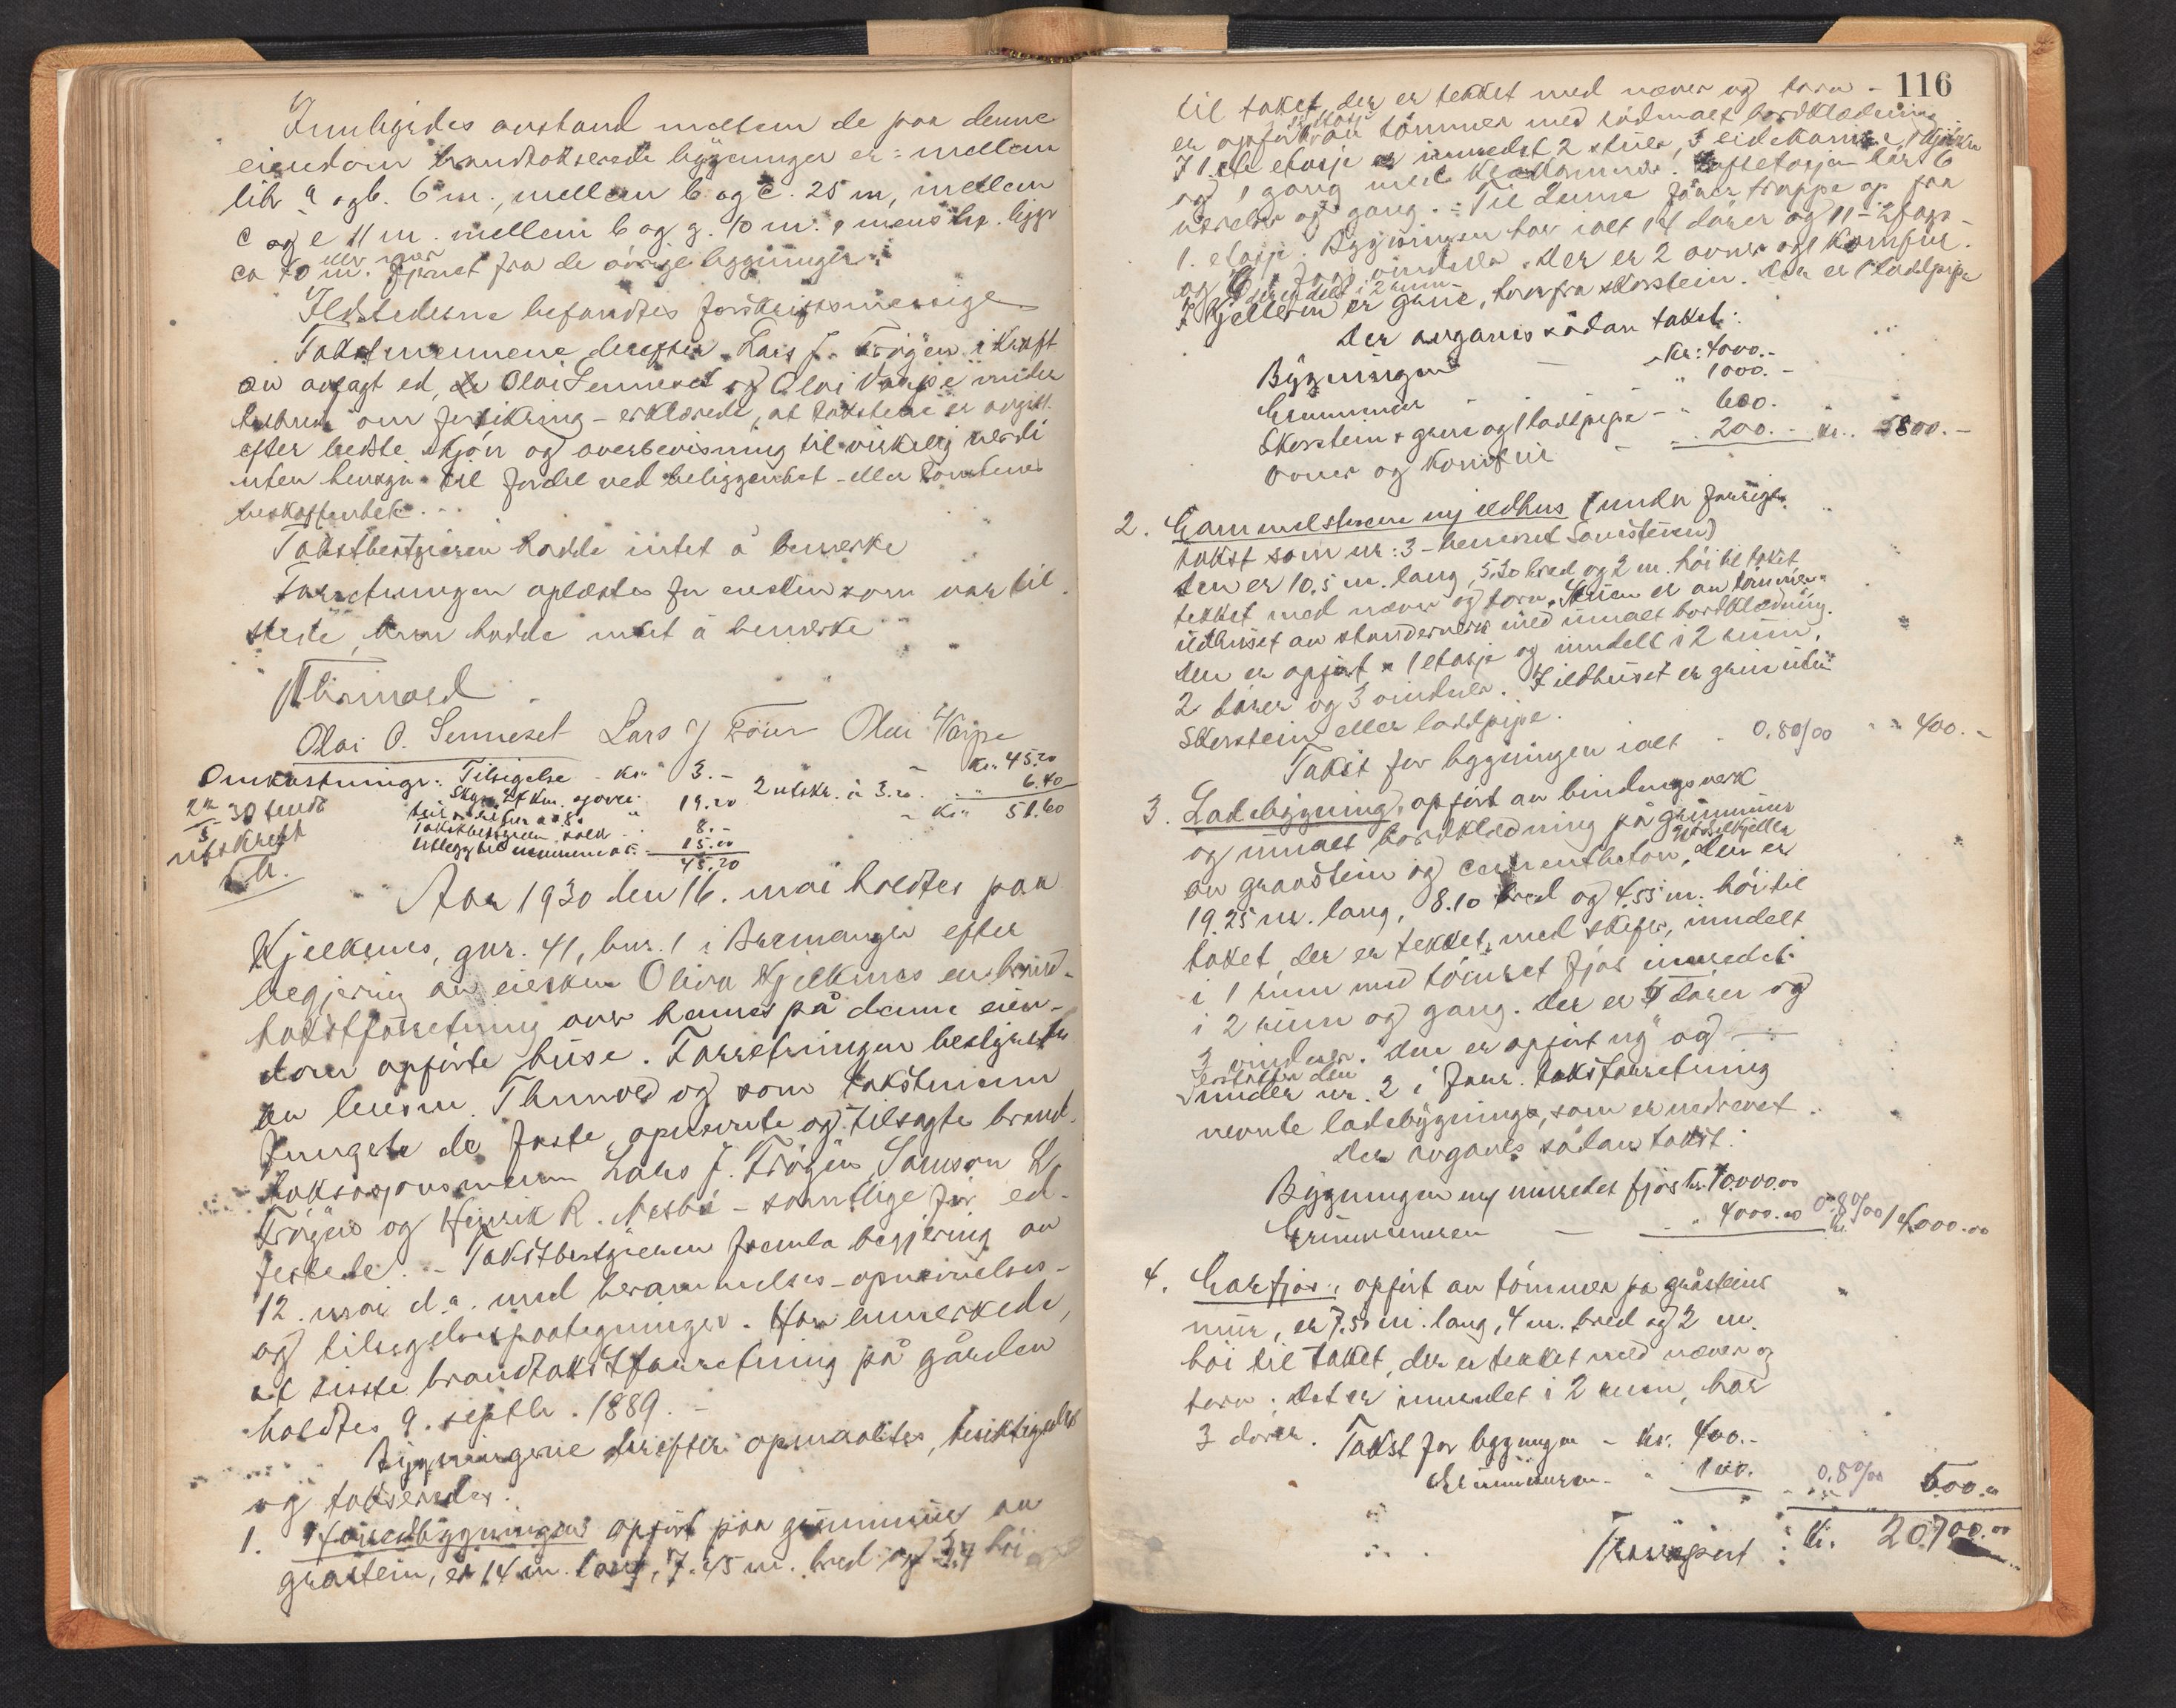 Innbyrdes avstand mellem de paa denne
eiendom brandtakserede bygninger er: mellem
litr a og b. 6 m., mellem b og c. 25 m, mellem
c og e 11 m. mellem b og g. 10 m. mens ligger
ca 70 m. eller mer fjernet fra de övrige bygninger.
Ildstederne befandtes forskriftsmessige
Takstmennene derefter Lars J. Fröyen i kraft
av avlagt ed, Olai Senneset og Olai Varpe under
tilbud om forsikring - erklærede, at taksten er avgitt
efter bedste skjön og overbevisning til virkelig verdi
uten hensyn til fordel ved beliggenhet - eller tomtens
beskaffenhet.
Takstbestyreren hadde intet å bemerke
Forretningen oplæstes for eieren som var til
stede, han hadde intet å bemerke
Thinvold
Olai O. Senneset Lars J Fröien Olai Varpe
Omkostninger: Tilsigelse - kr. 3.-
Skyss 24 km. 19.20
2 utskr. à 3.20 kr. 45.20
6.40
kr. 51.60
Takstbestyreren 8.-
Utlegg til mennene à 5.- 15.00
45.20
30 sendt
utskrift
Th.
Aar 1930 den 16. mai holdtes paa
Kjelkenes, gnr. 41, bnr. 1 i Bremanger efter
begjering av eiersken Oliva Kjelkenes en brand-
takstforretning over hennes på denne eien-
dom opförte huse. Forretningen bestyrtes
av lensm. Thinvold og som takstmenn
fungerte de faste opnevnte og tilsagte brand-
taksasjonsmenn Lars J. Fröyen, Samson L.
Fröyen og Henrik R. Nesbö - samtlige för ed-
festede. - Takstbestyreren fremla begjering av
12. mai d.a. med berammelses-opnevnelses-
og tilsigelsespaategninger. Han anmerkede,
at siste brandtakstforretning på gården
holdtes 9. septbr. 1889. -
Bygningene derefter opmaaltes, besiktigedes
og taksertes.
1. Hovedbygningen opfört paa grunnmur av
gråstein, er 14 m. lang, 7.45 m. bred og 3.4 höi
116
til taket, der er tekket med never og torv -
er opfört av tömmer med rödmalt bordklædning
I 1ste etasje er innredet 2 stuer, 3 sidekammer, 1 kjökken
og 1 gang med kammer. Loftsetasjen har 6
værelser og gang. - Til denne förer trappe op fra
1. etasje. Bygningen har ialt 14 dörer og 11 - 2 fags -
og 6 1 fags vinduer. Der er 2 ovner og 1 komfur.
I kjelleren der er delt i 2 rum er grue, derfra skorstein. Der er 1 laddpipe
Der avgaves sådan takst:
Bygningen - kr. 4000.-
Grunnmur " 1000.-
Skorstein + grue og 1 laddpipe - " 600.
Ovner og komfur - " 200.- kr. 5800.-
2. Gammelstuen m/ eldhus (under forrige
takst som nr: 3 - benevnet Sovestuen)
Den er 10.5 m. lang, 5.30 bred og 2 m. höi til taket
tekket med never og torv. Stuen er av tömmer
ildhuset av standerverk med umalt bordklædning.
Den er opfört i 1 etasje og inndelt i 2 rum,
2 dörer og 3 vinduer. I ildhuset er grue uten
skorstein eller laddpipe.
Takst for bygningen ialt - 0.8 0/00 " " 400.-
3. Ladebygning, opfört av bindingsverk
og umalt bordklædning på grunnmur
av gråstein og cementbeton, Den er
19.25 m. lang, 8.10 bred og 4.55 m. höi til
taket, der er tekket med skifer, inndelt
i 1 rum med tömret fjös innredet
i 2 rum og gang. Der er 4 dörer og
3 vinduer. Den er opfört ny og -
erstatter den under nr. 2 i forr. takstforretning
nevnte ladebygning, som er nedrevet.
Der avgaves sådan takst:
Bygningen m/ innredet fjös kr. 10.000.00
Grunnmuren - " 4000.00 0.8 0/00 kr. 14000.00
4. Geitfjös, opfört av tömmer på gråsteins
mur, er 7.50 m. lang, 4 m. bred og 2 m.
höi til taket, der er tekket med never og
torv. Det er innredet i 2 rum, har
3 dörer. Takst for bygningen - kr. 400.-
Grunnmuren - " 100. 0.8 0/00 500.00
Transport: kr. 20700.00